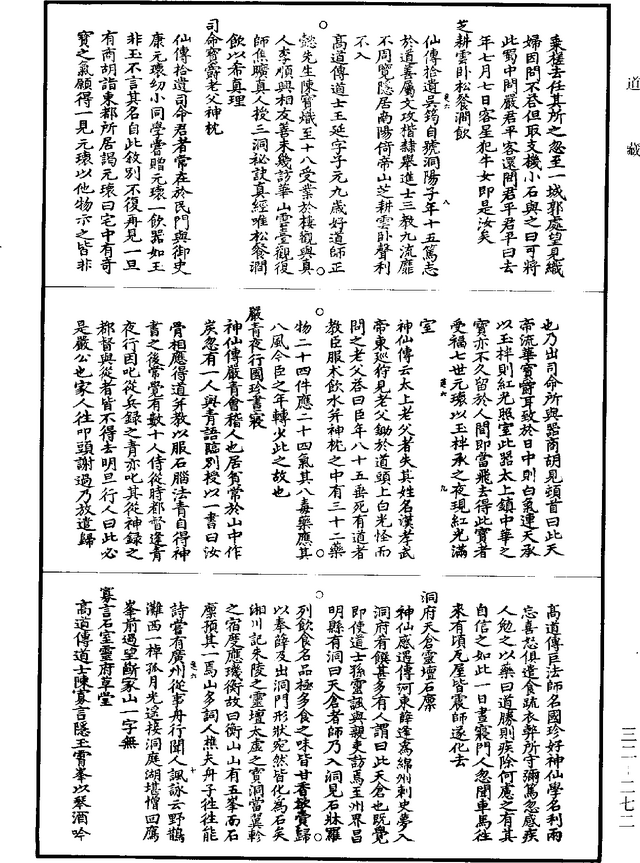 乘槎去任其所之忽至一城郭處望見織
婦因問不荅但取支機小石與之曰可將
此蜀中問嚴君平客還問君平君平曰去
年七月七日客星犯牛女即是汝矣
芝耕雲卧松餐澗飲
仙傳拾遺吳筠自號洞陽子年十五篤志
於道善屬文攻楷隸舉進士三教九流靡
不周覽隱居南陽倚帝山芝耕雲卧聲利
不入
高道傳道士王延字子元九歲好道師正
懿先生陳寳熾至十八受業於樓觀與真
人李順興相友善未幾訪華山雲臺觀復
師焦曠真人授三洞秘訣真經唯松餐澗
飲以希真理
司命寳爵老父神枕
仙傳拾遺司命君者常在於民門與御史
康元瓌幼小同學甞贈元瓌一飲器如玉
非玉不言其名自此敘別不復再見一旦
有商胡詣東都所居謁元瓌曰宅中有奇
寳之氣願得一見元瓌以他物示之皆非
也乃出司命所與器商胡見頭首曰此天
帝流華寳爵耳致於日中則白氣連天承
以玉柈則紅光照室此器太上鎮中華之
寳亦不久留於人間即當飛去得此寳者
受福七世元瓌以玉柈承之夜現紅光滿
室
神仙傳云太上老父者失其姓名漢孝武
帝東巡狩見老父鋤於道頭上白光恠而
問之老父荅曰臣年八十五垂死有道者
教臣服朮飲水并神枕之中有三十二藥
物二十四件應二十四氣其八毒藥應其
八風今臣之年轉少此之故也
嚴青夜行國珍晝寢
神仙傳嚴青會稽人也居貧常於山中作
炭忽有一人與青語臨別授以一書曰汝
骨相應得道并教以服石腦法青自得神
書之後常覺有數十人侍從時都督逢青
夜行因叱從兵録之青亦叱其從神録之
都督與從者皆不得去明旦行人曰此必
是嚴公也家人往叩頭謝過乃放遣歸
高道傳巨法師名國珍好神仙學名利兩
忘喜怒俱遣食疏衣弊所守彌篤忽感疾
人勉之以藥曰道勝則疾除何慮之有其
自信之如此一日晝寢門人忽聞車馬往
來有頃瓦屋皆震師遂化去
洞府天倉靈壇石廪
神仙感遇傳河東薛逢為綿州刺史夢入
洞府有饌甚多有人謂曰此天倉也既覺
即使道士孫靈諷與親吏訪焉至州界昌
明縣有洞曰天倉者師乃入洞見石牀羅
列飲食名品極多食之味皆甘香欲賫歸
以奉薛及出洞門形狀宛然皆化為石矣
湘川記朱陵之靈壇太虚之寳洞當翼軫
之宿度應璣衡故曰衡山山有五峯而石
廪預其一焉山多詞人樵夫舟子徃徃能
詩嘗有廣州從事舟行聞人諷詠云野鵲
灘西一棹孤月光遥接洞庭湖堪憎回鴈
峯前過望斷家山一字無
寡言石室靈府草堂
高道傳道士陳寡言隱玉霄峯以琴酒吟
道藏
三二－二七二